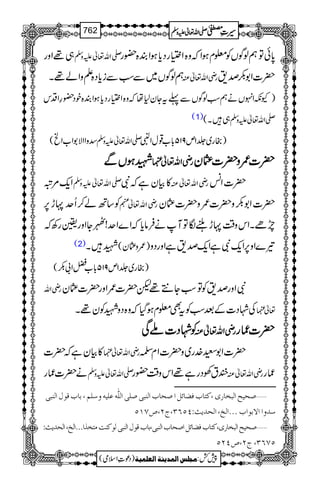 سیرتِ مصطفیٰ صلی اللہ تعالیٰ علیہ وسلم 762
پائی تو ہم لوگوں کو معلوم ہوا کہ وہ اختیار دیا ہوا بندہ حضور صلی اللہ تعالیٰ علیہ وسلم ہی تھے اور
حضرت ابوبکر صدیق رضی اللہ تعالیٰ عنہ ہم لوگوں میں سب سے زیادہ علم والے تھے۔
(کیونکہ انہوں نے ہم سب لوگوں سے پہلے یہ جان لیا تھا کہ وہ اختیار دیا ہوا بندہ خود حضور اقدس
صلی اللہ تعالیٰ علیہ وسلم ہی ہیں۔) (1)
(بخاری جلد ۱ ص ۵۱۹ باب قول النبی صلی اللہ تعالیٰ علیہ وسلم سدوا الابواب الخ)
حضرت عمر و حضرت عثمان رضی اللہ تعالیٰ عنہما شہید ہوں گے
حضرت انس رضی اللہ تعالیٰ عنہ کا بیان ہے کہ نبی صلی اللہ تعالیٰ علیہ وسلم ایک مرتبہ
حضرت ابوبکر و حضرت عمر و حضرت عثمان رضی اللہ تعالیٰ عنہم کو ساتھ لے کر اُحد پہاڑ پر
چڑھے۔ اس وقت پہاڑ ہلنے لگا تو آپ نے فرمایا کہ اے احد! ٹھہر جا اور یقین رکھ کہ
تیرے اوپر ایک نبی ہے ایک صدیق ہے اور دو (عمر و عثمان) شہید ہیں۔ (2)
(بخاری جلد ۱ ص ۵۱۹ باب فضل ابی بکر)
نبی اور صدیق کو تو سب جانتے تھے لیکن حضرت عمر اور حضرت عثمان رضی اللہ
تعالیٰ عنہما کی شہادت کے بعد سب کو یہ بھی معلوم ہو گیا کہ وہ دو شہید کون تھے۔
حضرت عمار رضی اللہ تعالیٰ عنہ کو شہادت ملے گی
حضرت ابوسعید خدری و حضرت ام سلمہ رضی اللہ تعالیٰ عنہما کا بیان ہے کہ حضرت
عمار رضی اللہ تعالیٰ عنہ خندق کھود رہے تھے اس وقت حضور صلی اللہ تعالیٰ علیہ وسلم نے حضرت عمار
صحیح البخاری، کتاب فضائل اصحاب النبی صلی اللہ علیہ وسلم، باب قول النبی
سدوا الابواب...الخ، الحدیث: ۳٦٥٤، ج۲، ص٥١٧
صحیح البخاری، کتاب فضائل اصحاب النبی، باب قول النبی لو کنت متخذا...الخ، الحدیث:
۳٦٧٥، ج۲، ص٥٢٤
پیش کش: مجلس المدینة العلمیة (دعوتِ اسلامی)